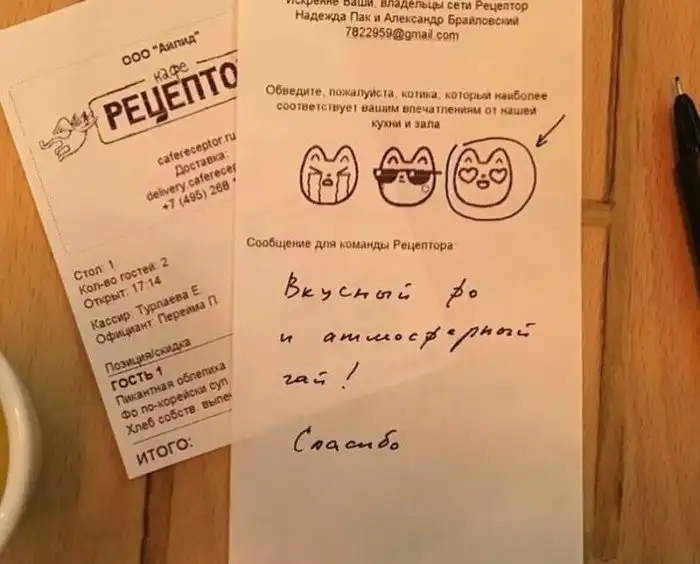 ООО "Айпид"
кафе
РЕЦЕПТО
cafereceptor.ru
Доставка:
delivery.caferecep
+7 (495) 268
Стол: 1
Кол-во гостей: 2
Открыт: 17:14
Кассир: Турлаева Е.
Официант: Перейма П.
Позиция/скидка
ГОСТЬ 1
Пикантная облепиха
Фо по-корейски суп
Хлеб собств. выпеч
ИТОГО:
Искренне Ваши, владельцы сети Рецептор
Надежда Пак и Александр Брайловский
7822959@gmail.com
Обведите, пожалуйста, котика, который наиболее
соответствует вашим впечатлениям от нашей
кухни и зала
Сообщение для команды Рецептора:
Вкусный фо
и атмосферный
чай!
Спасибо